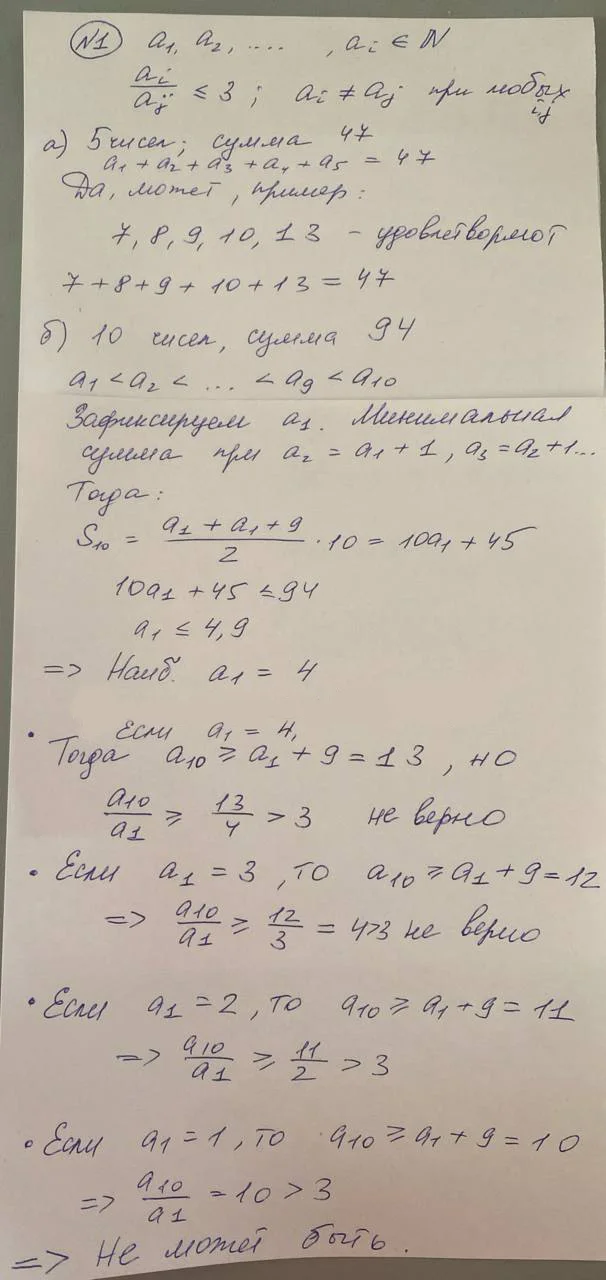 №1 a₁, a₂, .... , aᵢ ∈ N
aᵢ/aⱼ ≤ 3 ; aᵢ ≠ aⱼ при любых i,j
а) 5 чисел; сумма 47
a₁ + a₂ + a₃ + a₄ + a₅ = 47
Да, может, пример:
7, 8, 9, 10, 13 - удовлетворяют
7 + 8 + 9 + 10 + 13 = 47
б) 10 чисел, сумма 94
a₁ < a₂ < ... < a₉ < a₁₀
Зафиксируем a₁. Минимальная
сумма при a₂ = a₁ + 1, a₃ = a₂ + 1...
Тогда:
S₁₀ = (a₁ + a₁ + 9)/2 · 10 = 10a₁ + 45
10a₁ + 45 ≤ 94
a₁ ≤ 4,9
=> Наиб. a₁ = 4
• Если a₁ = 4,
Тогда a₁₀ ≥ a₁ + 9 = 13, но
a₁₀/a₁ ≥ 13/4 > 3 не верно
• Если a₁ = 3, то a₁₀ ≥ a₁ + 9 = 12
=> a₁₀/a₁ ≥ 12/3 = 4>3 не верно
• Если a₁ = 2, то a₁₀ ≥ a₁ + 9 = 11
=> a₁₀/a₁ ≥ 11/2 > 3
• Если a₁ = 1, то a₁₀ ≥ a₁ + 9 = 10
=> a₁₀/a₁ = 10 > 3
=> Не может быть.